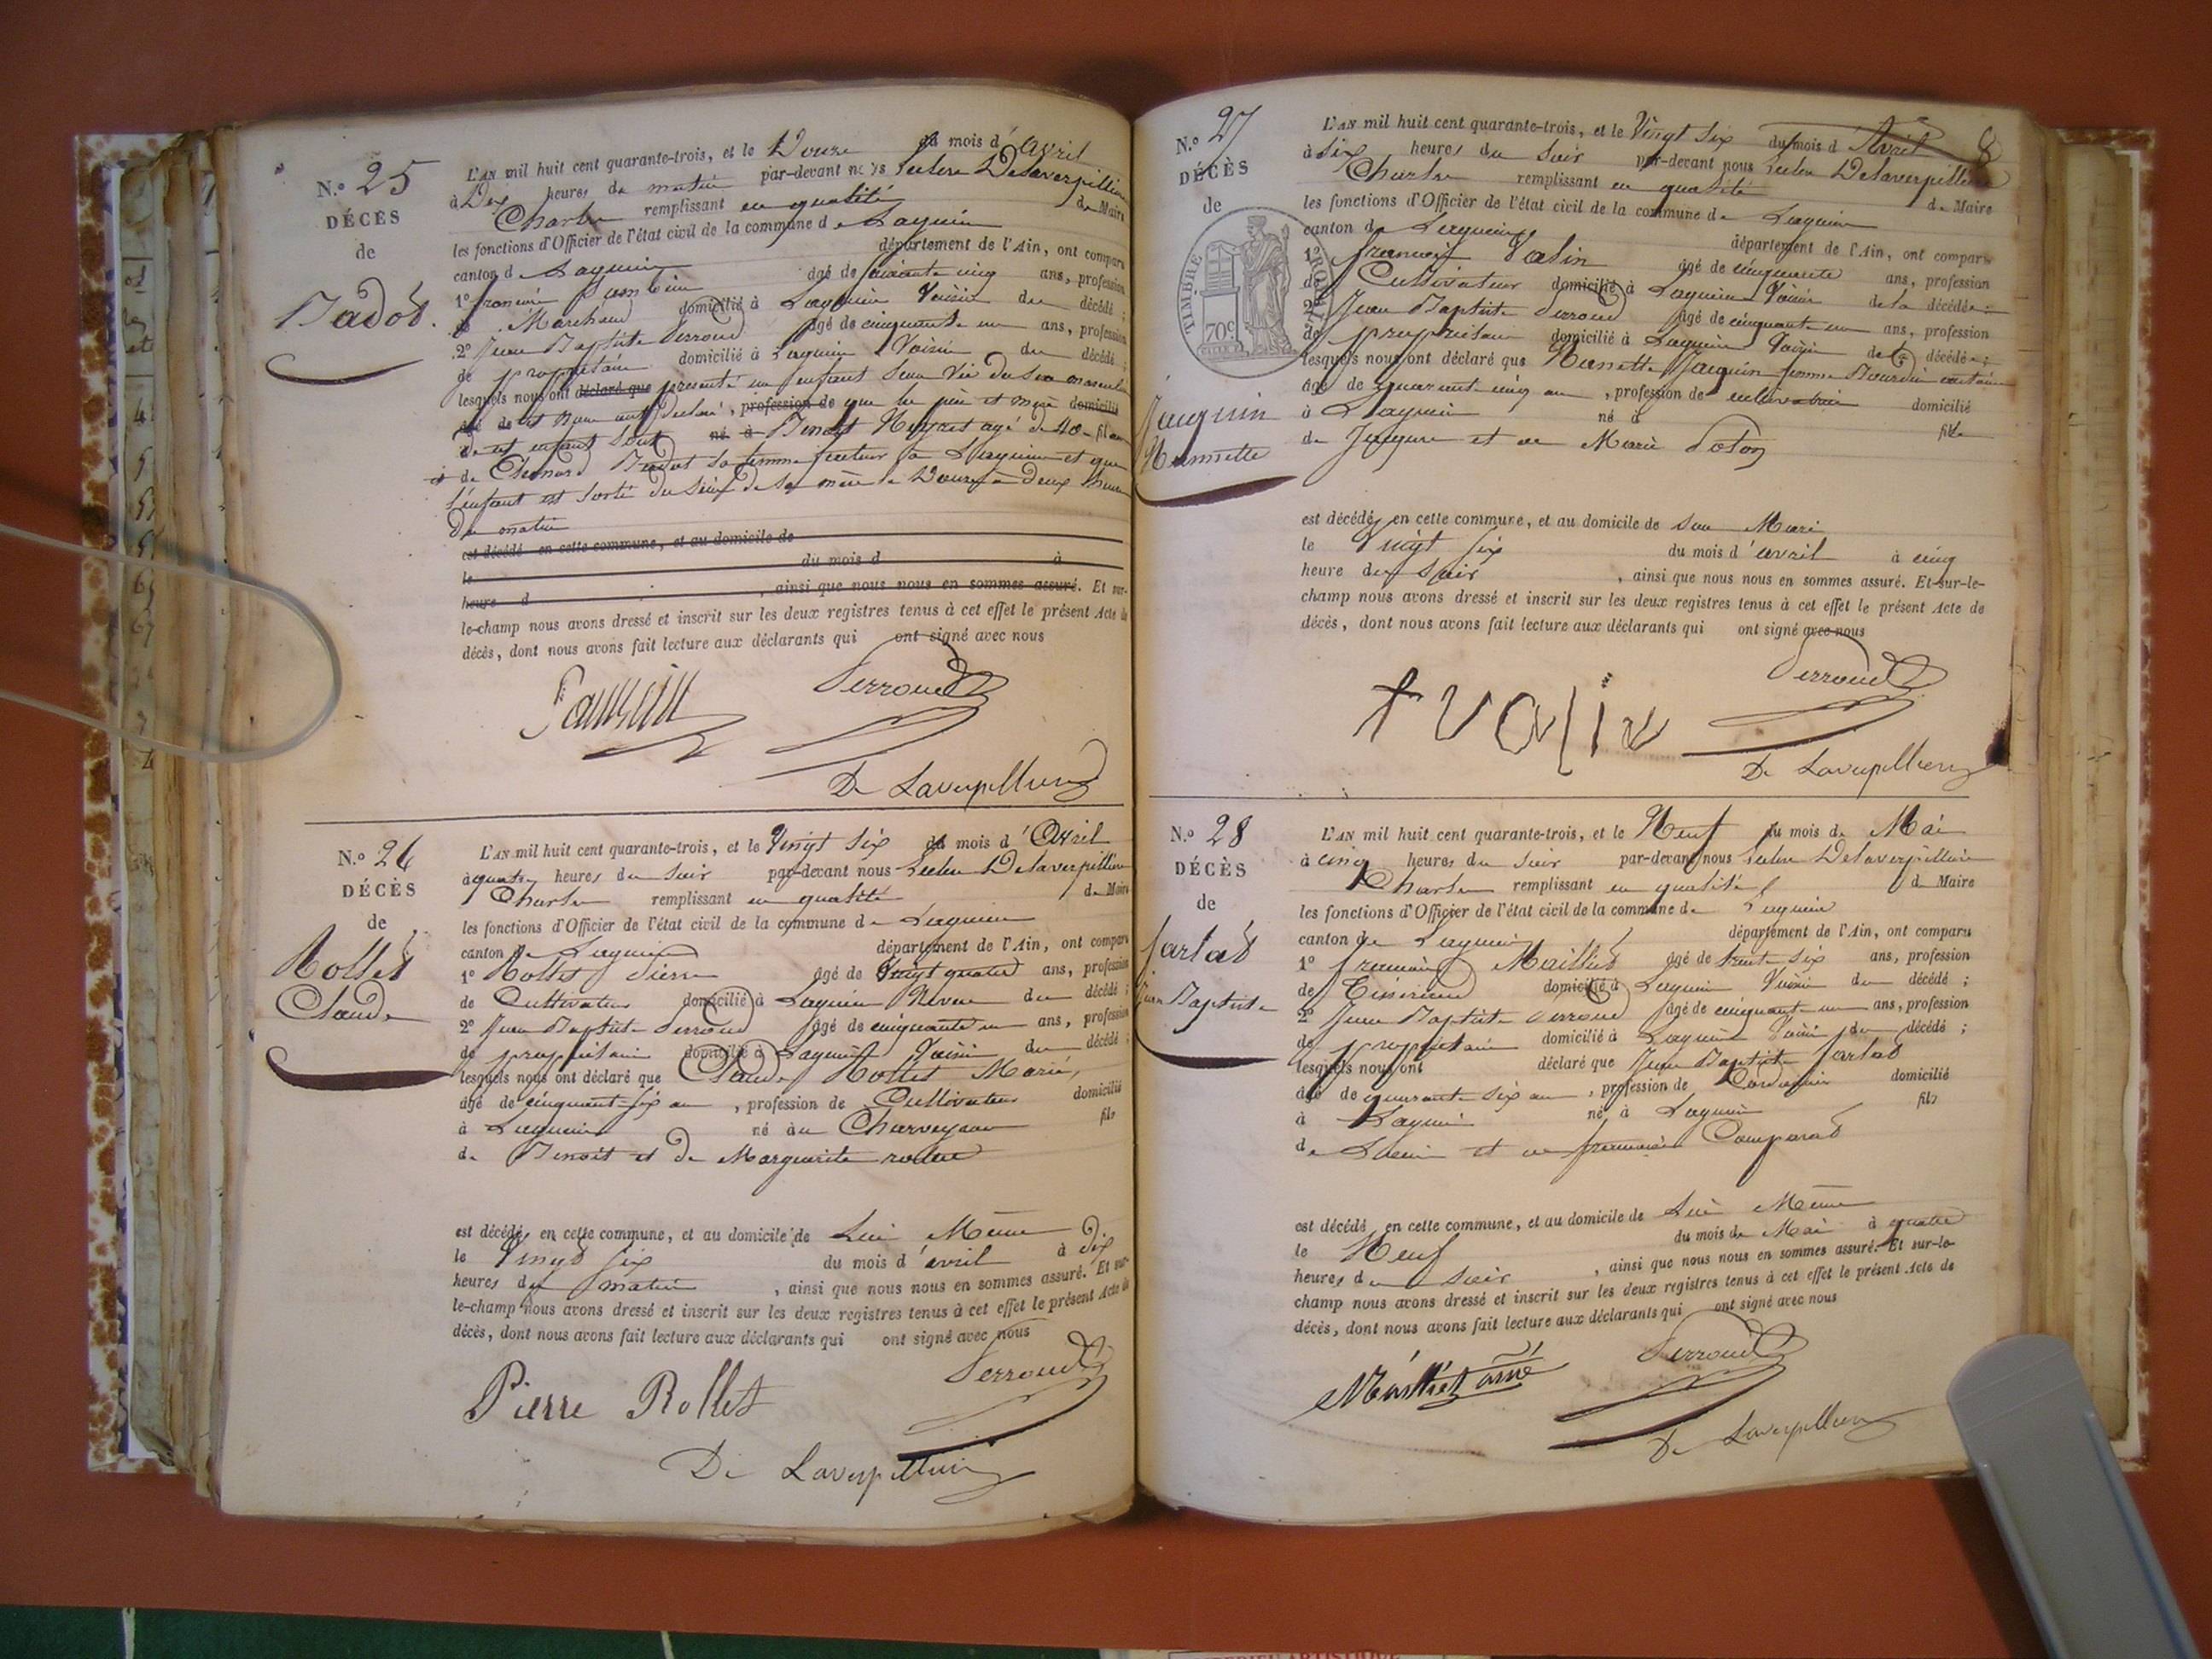 N.° 25
DÉCÈS
de
Badod.
L'AN mil huit cent quarante-trois, et le Douze du mois d'Avril
à Dix heures du matin par-devant nous Delaverpilliere
Charles remplissant en qualité de Maire
les fonctions d'Officier de l'état civil de la commune de Lagnieu
canton de Lagnieu département de l'Ain, ont comparu
1° françois âgé de soixante cinq ans, profession
de Marchand domicilié à Lagnieu Voisin du décédé ;
2° Jean Baptiste Perroud âgé de cinquante un ans, profession
de propriétaire domicilié à Lagnieu Voisin du décédé ;
lesquels nous ont déclaré que présenté un enfant sans Vie du sexe masculin
et nous ont déclaré, profession de que les père et mère domicilié
de cet enfant sont né à Benoit âgé de 40 fils ans
et de Badot sa femme à Lagnieu et que
l'enfant est sorti du sein de sa mère le Douze à Deux heures
Du matin
est décédé en cette commune, et au domicile de
le du mois d à
heure d , ainsi que nous nous en sommes assuré. Et sur-
le-champ nous avons dressé et inscrit sur les deux registres tenus à cet effet le présent Acte de
décès, dont nous avons fait lecture aux déclarants qui ont signé avec nous
Perroud
De Laverpilliere
N.° 26
DÉCÈS
de
Rollet
Claude
L'AN mil huit cent quarante-trois, et le Vingt six du mois d'Avril
à quatre heures du soir par-devant nous Delaverpilliere
Charles remplissant en qualité de Maire
les fonctions d'Officier de l'état civil de la commune de Lagnieu
canton de Lagnieu département de l'Ain, ont comparu
1° Rollet Pierre âgé de Vingt quatre ans, profession
de Cultivateur domicilié à Lagnieu Neveu du décédé ;
2° Jean Baptiste Perroud âgé de cinquante un ans, profession
de propriétaire domicilié à Lagnieu Voisin du décédé ;
lesquels nous ont déclaré que Claude Rollet Marié,
âgé de cinquante six ans, profession de Cultivateur domicilié
à Lagnieu né au Charveyron fils
de Benoit et de Marguerite
est décédé, en cette commune, et au domicile de Lui Même
le Vingt six du mois d'avril à dix
heures du matin, ainsi que nous nous en sommes assuré. Et sur-
le-champ nous avons dressé et inscrit sur les deux registres tenus à cet effet le présent Acte de
décès, dont nous avons fait lecture aux déclarants qui ont signé avec nous
Perroud
Pierre Rollet
De Laverpilliere
8
N.° 27
DÉCÈS
de
TIMBRE ROYAL
70c.
Jacquin
Nannette
L'AN mil huit cent quarante-trois, et le Vingt six du mois d'Avril
à six heures du soir par-devant nous Delaverpilliere
Charles remplissant en qualité de Maire
les fonctions d'Officier de l'état civil de la commune de Lagnieu
canton de Lagnieu département de l'Ain, ont comparu
1° françois Valin âgé de cinquante ans, profession
de Cultivateur domicilié à Lagnieu Voisin de la décédée ;
2° Jean Baptiste Perroud âgé de cinquante un ans, profession
de propriétaire domicilié à Lagnieu Voisin de la décédée ;
lesquels nous ont déclaré que Nanette Jacquin femme Bourdin
âgé de quarante cinq ans, profession de cultivatrice domicilié
à Lagnieu né à fille
de Jacques et de Marie
est décédé, en cette commune, et au domicile de son Mari
le Vingt six du mois d'avril à cinq
heure du soir, ainsi que nous nous en sommes assuré. Et sur-le-
champ nous avons dressé et inscrit sur les deux registres tenus à cet effet le présent Acte de
décès, dont nous avons fait lecture aux déclarants qui ont signé avec nous
Perroud
f valin
De Laverpilliere
N.° 28
DÉCÈS
de
Jarlat
Jean Baptiste
L'AN mil huit cent quarante-trois, et le Neuf du mois de Mai
à cinq heures du soir par-devant nous Delaverpilliere
Charles remplissant en qualité de Maire
les fonctions d'Officier de l'état civil de la commune de Lagnieu
canton de Lagnieu département de l'Ain, ont comparu
1° françois Maillet âgé de trente six ans, profession
de domicilié à Lagnieu Voisin du décédé ;
2° Jean Baptiste Perroud âgé de cinquante un ans, profession
de propriétaire domicilié à Lagnieu Voisin du décédé ;
lesquels nous ont déclaré que Jean Baptiste Jarlat
âgé de quarante six ans, profession de Cordonnier domicilié
à Lagnieu né à Lagnieu fils
de et de françoise Comparat
est décédé en cette commune, et au domicile de Lui Même
le Neuf du mois de Mai à quatre
heures du soir, ainsi que nous nous en sommes assuré. Et sur-le-
champ nous avons dressé et inscrit sur les deux registres tenus à cet effet le présent Acte de
décès, dont nous avons fait lecture aux déclarants qui ont signé avec nous
Perroud
Maillet aîné
De Laverpilliere